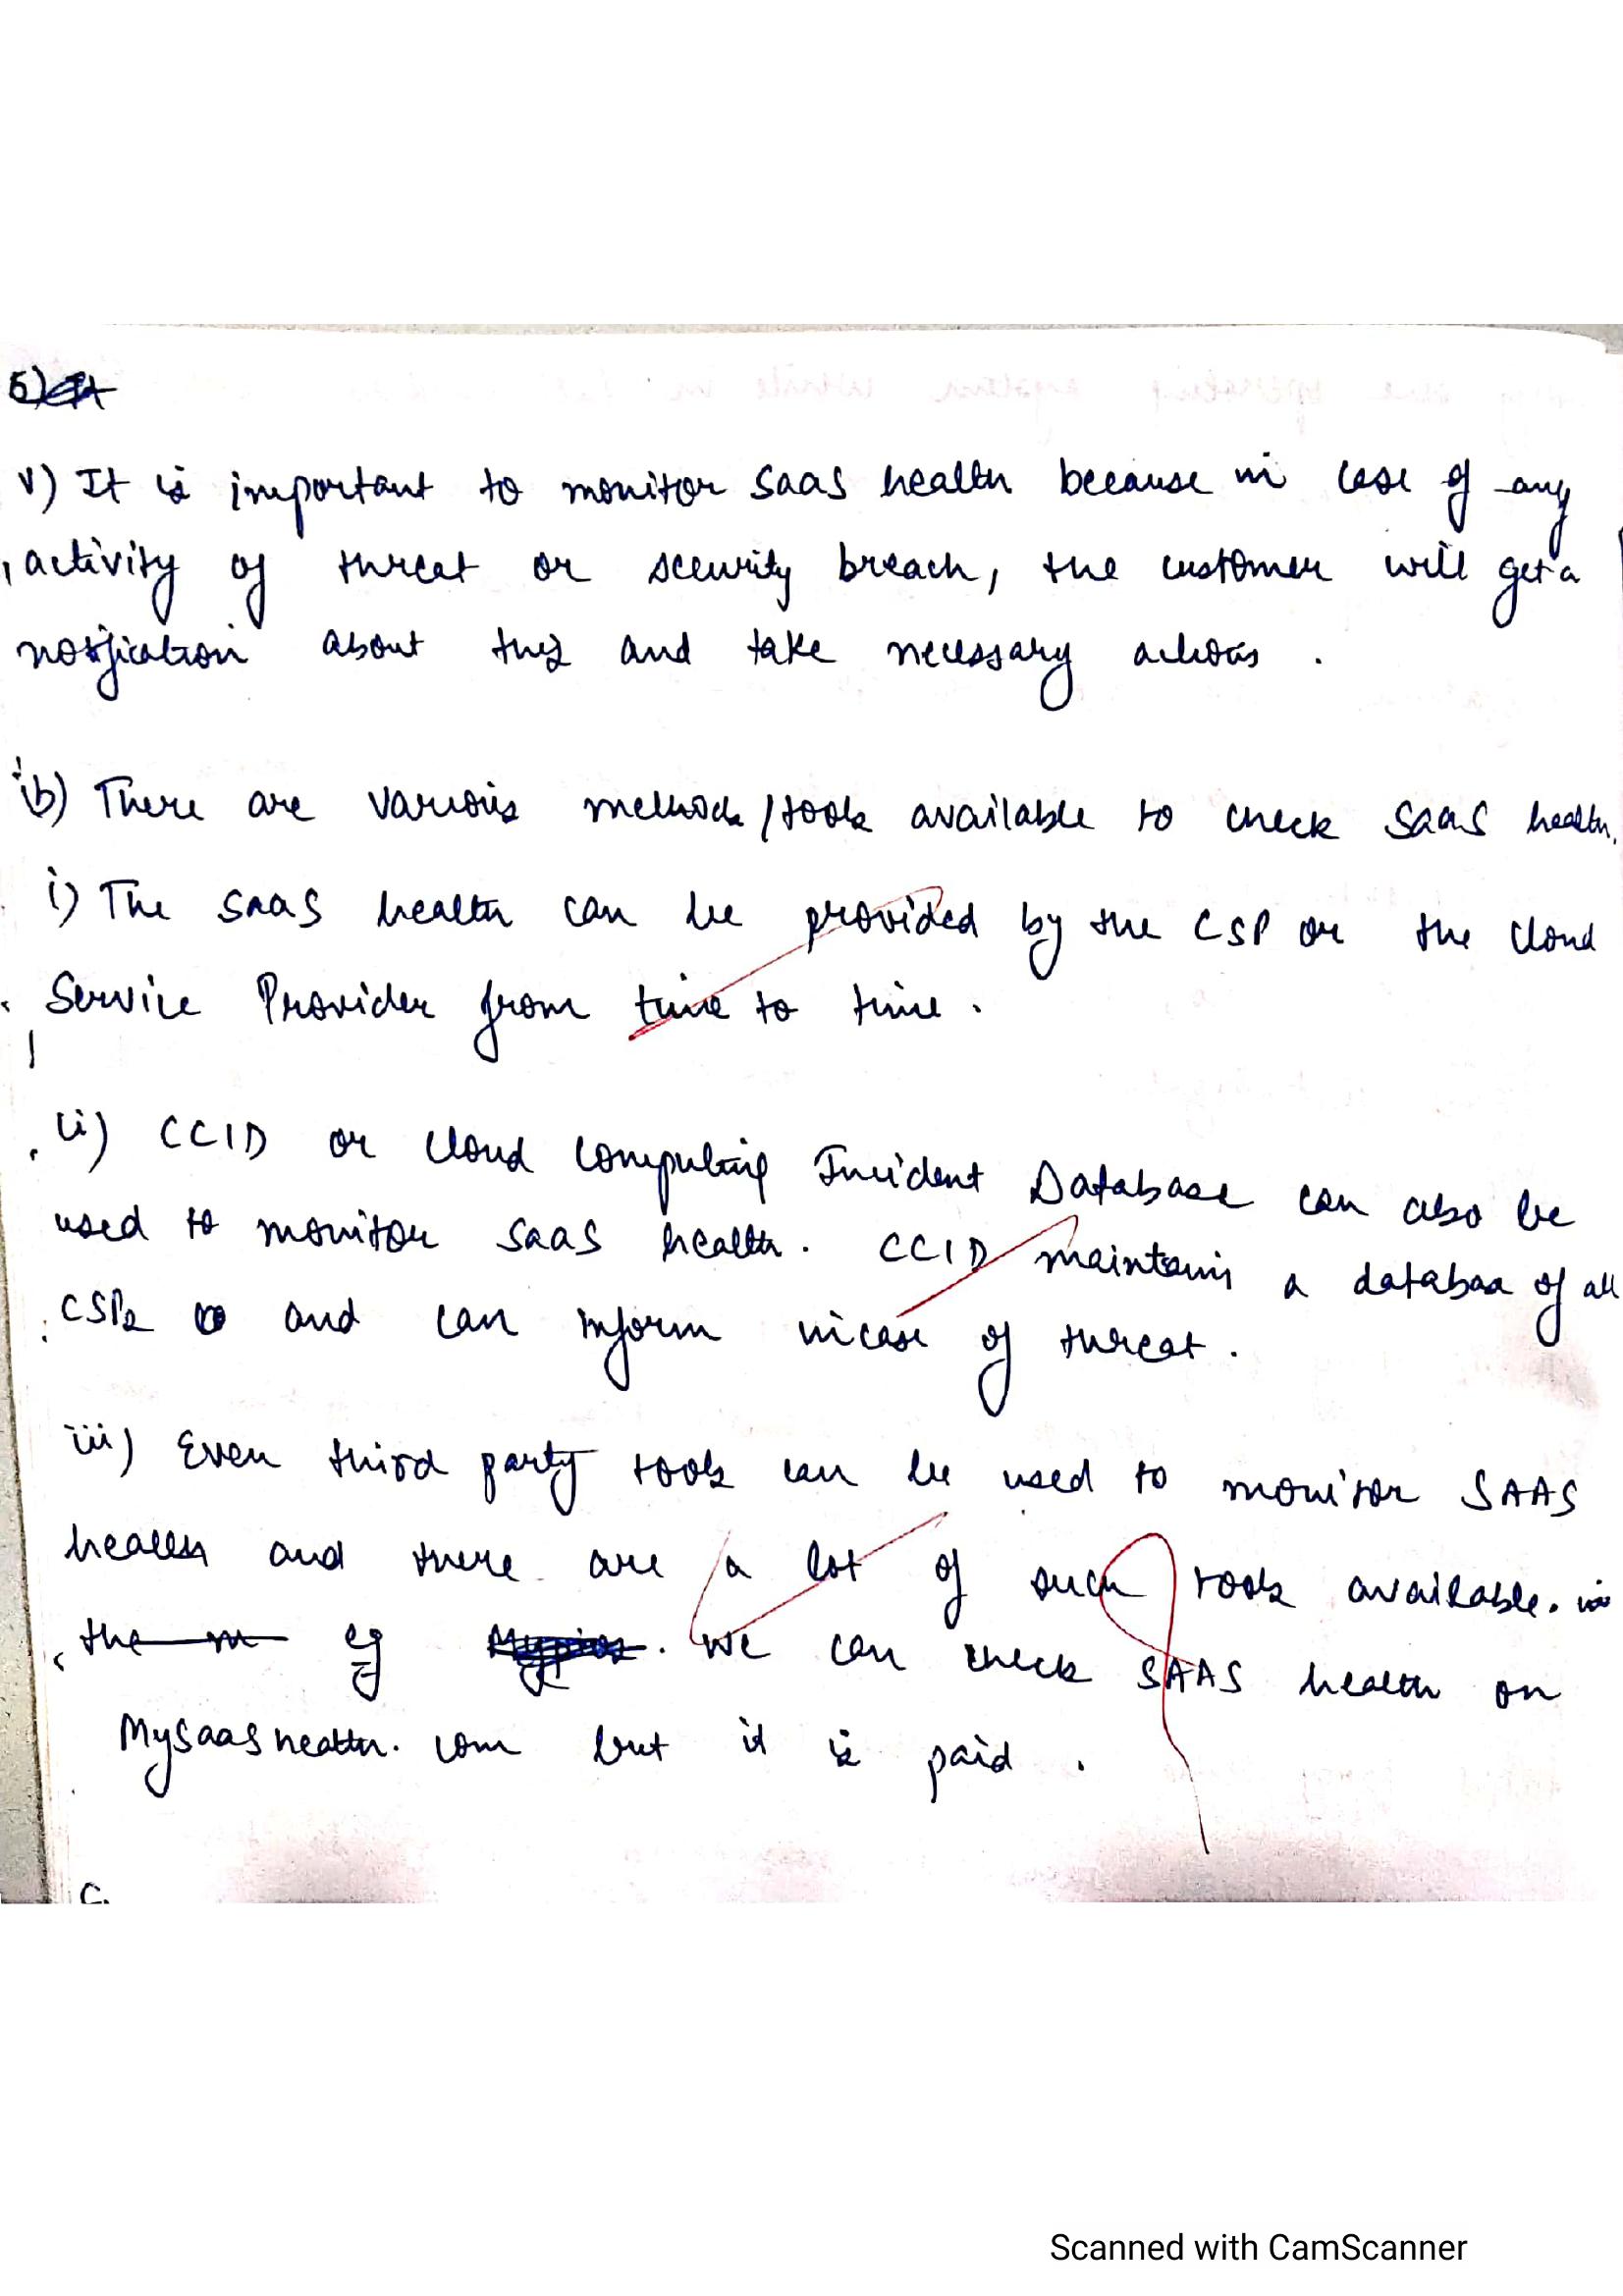 5) It
v) It is important to monitor SaaS health because in case of any
activity of threat or security breach, the customer will get a
notification about this and take necessary actions .
ib) There are various methods / tools available to check SaaS health.
i) The SaaS health can be provided by the CSP or the Cloud
Service Provider from time to time .
ii) CCID or Cloud Computing Incident Database can also be
used to monitor SaaS health . CCID maintains a database of all
CSPs and can inform incase of threat .
iii) Even third party tools can be used to monitor SAAS
health and there are a lot of such tools available .
the m eg . We can check SAAS health on
MySaaShealth.com but it is paid .
Scanned with CamScanner